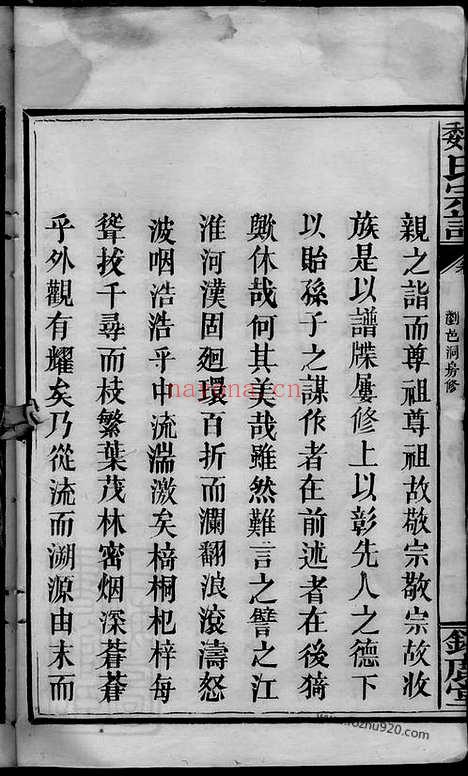 魏氏宗譜
瀏邑洞房修
親之詣而尊祖尊祖故敬宗敬宗故收
族是以譜牒屢修上以彰先人之德下
以貽孫子之謀作者在前述者在後猗
歟休哉何其美哉雖然難言之譬之江
淮河漢固迴環百折而瀾翻浪滾濤怒
波咽浩浩乎中流湍激矣椅桐杞梓每
聳拔千尋而枝繁葉茂林密烟深蒼蒼
乎外觀有耀矣乃從流而溯源由末而
nayona.cn
www.fozhu920.com